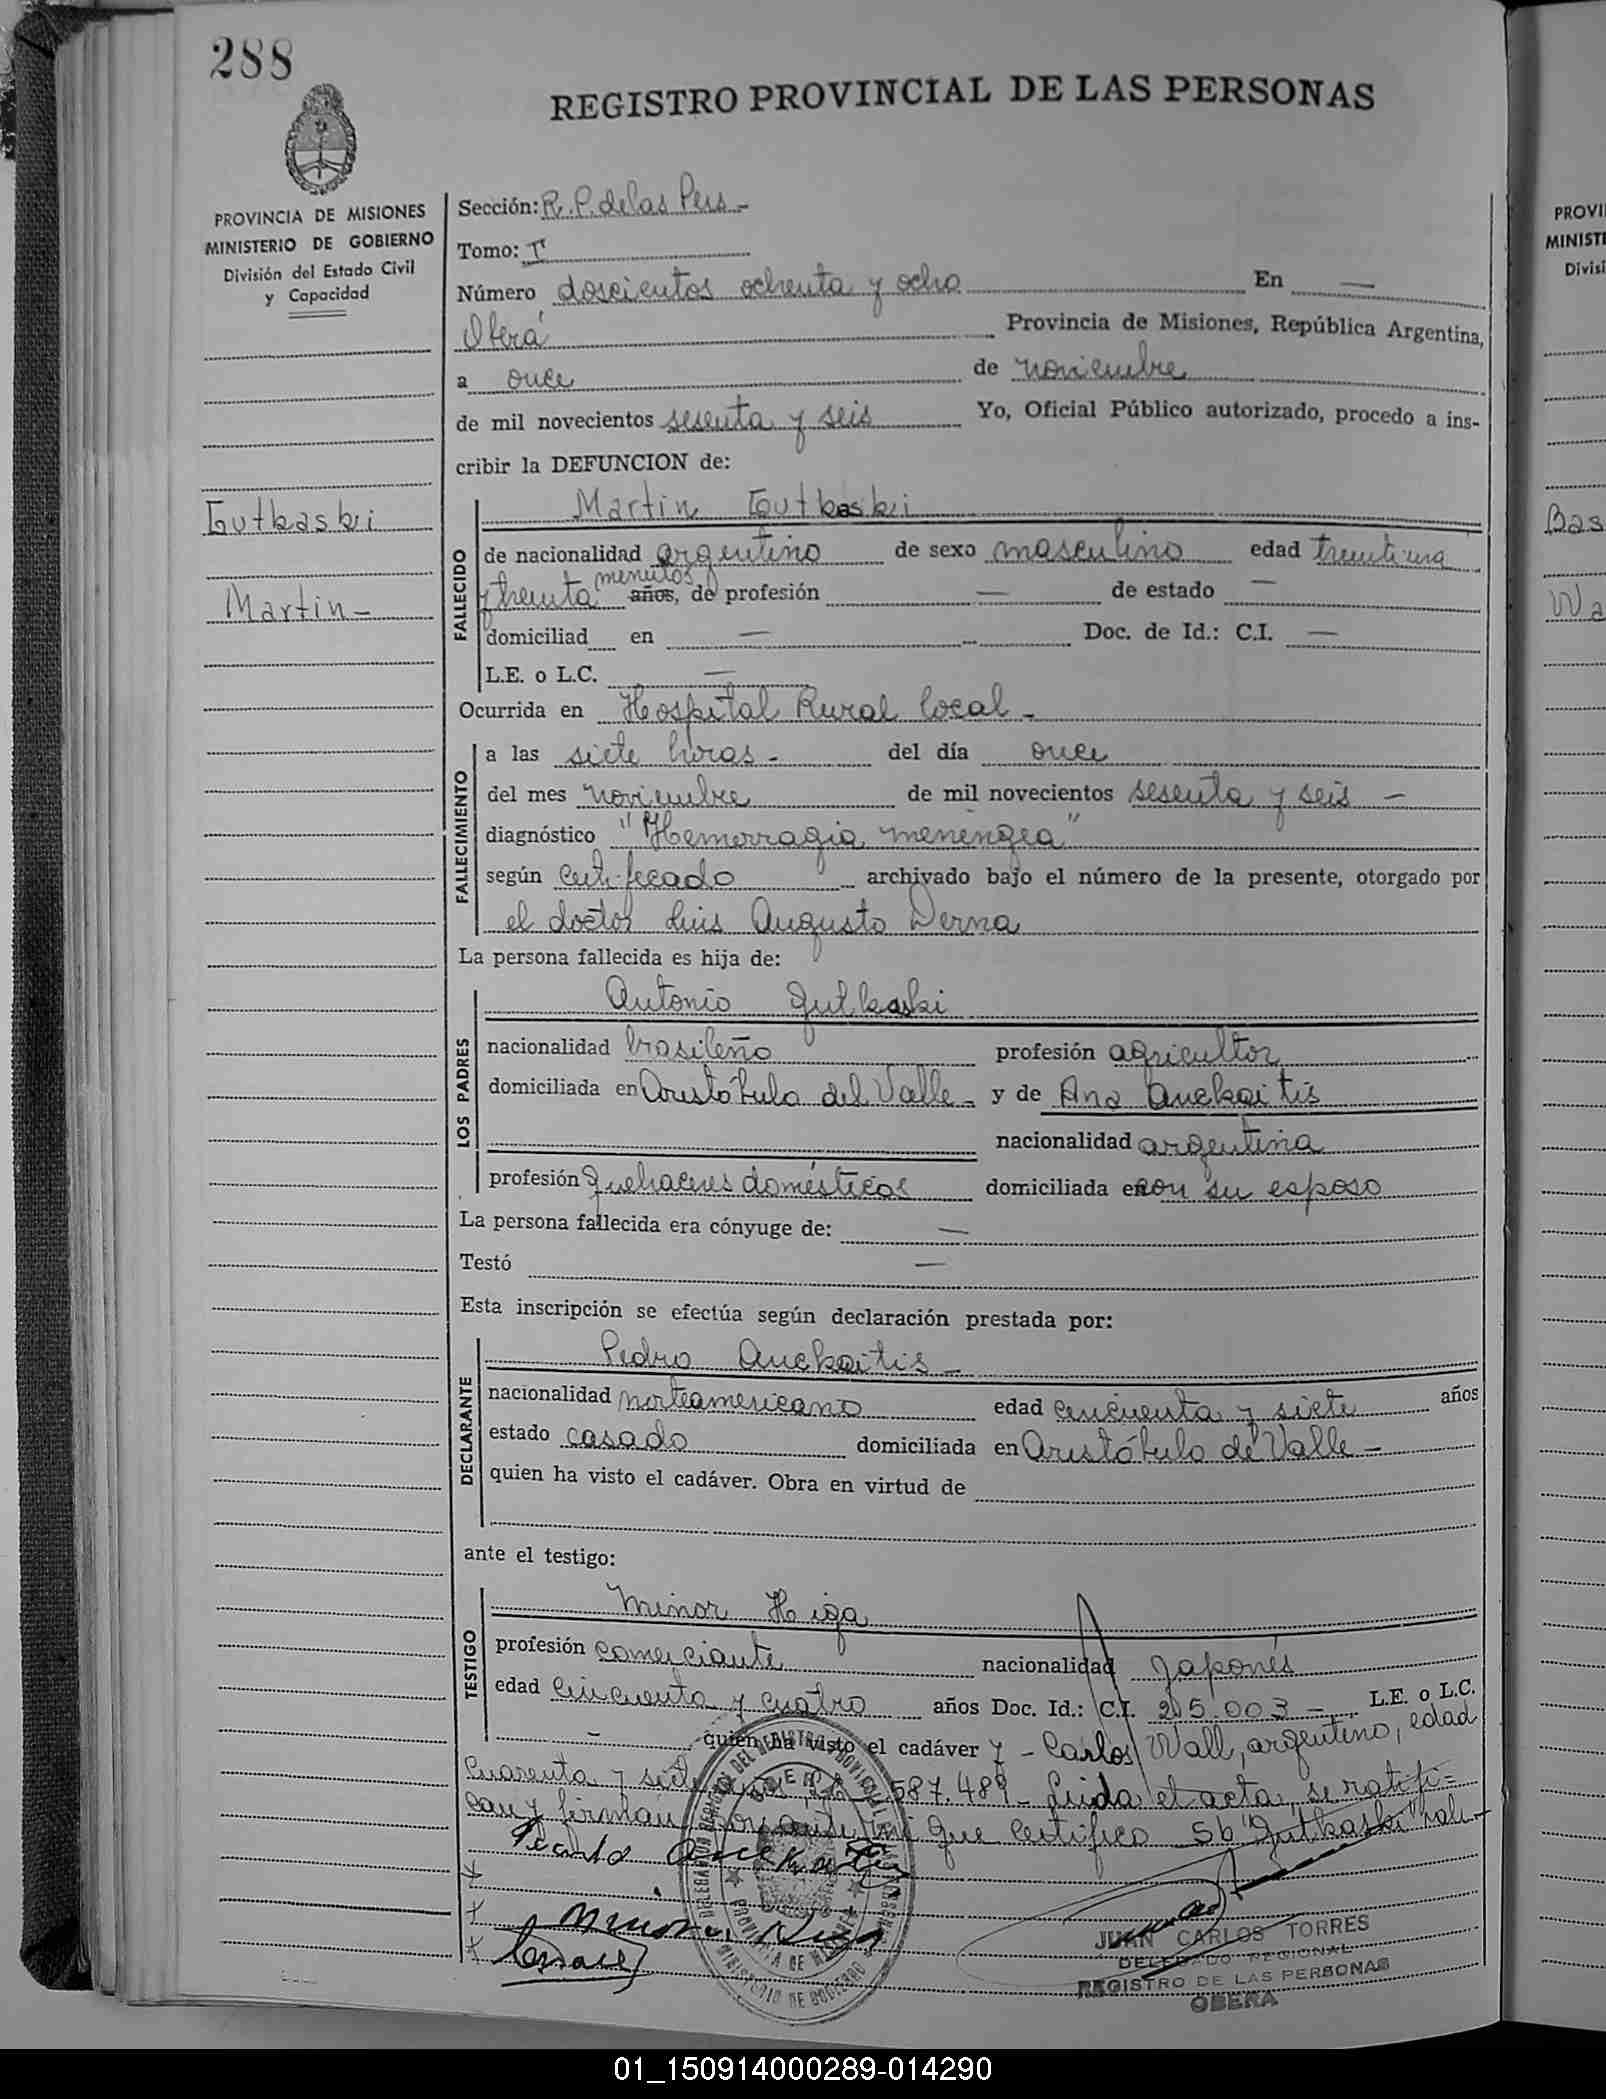 288
REGISTRO PROVINCIAL DE LAS PERSONAS
PROVINCIA DE MISIONES
MINISTERIO DE GOBIERNO
División del Estado Civil
y Capacidad
Gutkaski
Martin -
Sección: R. P. de las Pers -
Tomo: I
Número doscientos ochenta y ocho En —
Oberá Provincia de Misiones, República Argentina,
a once de noviembre
de mil novecientos sesenta y seis Yo, Oficial Público autorizado, procedo a ins-
cribir la DEFUNCION de:
FALLECIDO
Martin Gutkaski
de nacionalidad argentino de sexo masculino edad
y treinta minutos años, de profesión — de estado —
domiciliad en — Doc. de Id.: C.I. —
L.E. o L.C. —
Ocurrida en Hospital Rural local -
FALLECIMIENTO
a las siete horas - del día once
del mes noviembre de mil novecientos sesenta y seis -
diagnóstico "Hemorragia meningea"
según certificado archivado bajo el número de la presente, otorgado por
el doctor Luis Augusto Derna
La persona fallecida es hija de:
LOS PADRES
Antonio Gutkaski
nacionalidad brasileño profesión agricultor
domiciliada en Aristóbulo del Valle - y de Ana Anckaitis
nacionalidad argentina
profesión quehaceres domésticos domiciliada en con su esposo
La persona fallecida era cónyuge de: —
Testó —
Esta inscripción se efectúa según declaración prestada por:
DECLARANTE
Pedro Anckaitis -
nacionalidad norteamericano edad cincuenta y siete años
estado casado domiciliada en Aristóbulo del Valle -
quien ha visto el cadáver. Obra en virtud de
ante el testigo:
TESTIGO
Minor Higa
profesión comerciante nacionalidad japonés
edad cincuenta y cuatro años Doc. Id.: C.I. 205.003 - L.E. o L.C.
- quien ha visto el cadáver y - Carlos Wall, argentino, edad
cuarenta y siete años, 587.489 - Leida el acta, se ratifi=
can y firman por ante mí que certifico Sb "Gutkaski" vale
JUAN CARLOS TORRES
DELEGADO REGIONAL
REGISTRO DE LAS PERSONAS
OBERA
PROVI
MINISTE
Divisi
Bas
Wa
01_150914000289-014290